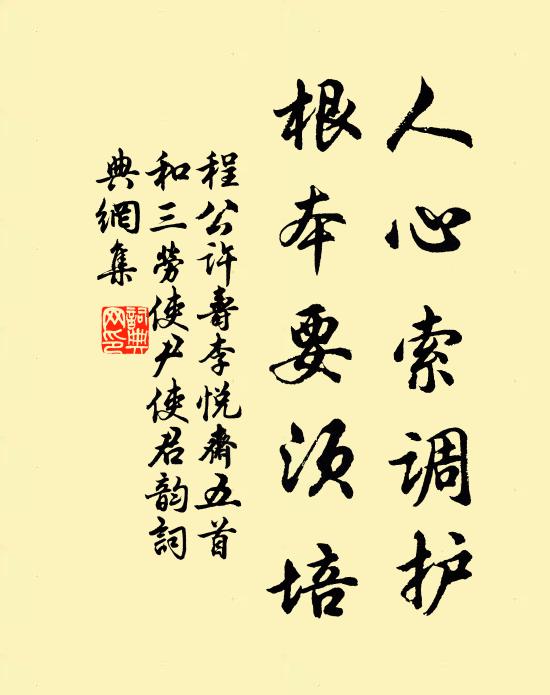 人心索调护
根本要须培
程公许寿李悦齋五首
和三劳使尹使君韵詞
典網集
詞典网印